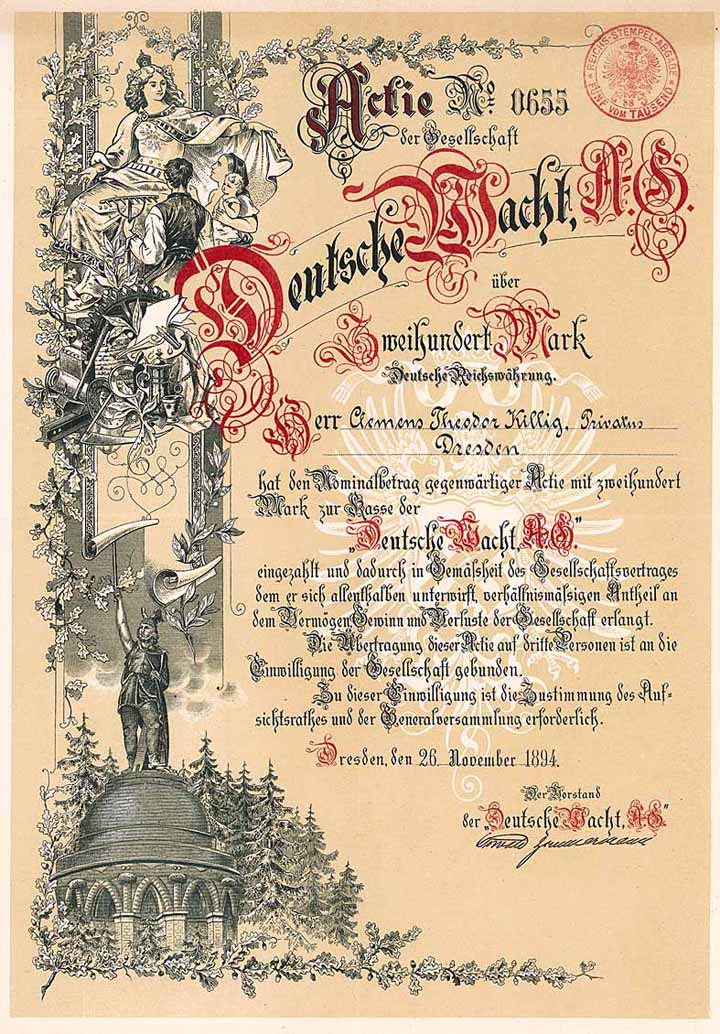 Actie No. 0655
REICHS-STEMPEL-ABGABE
FÜNF VOM TAUSEND
der Gesellschaft
Deutsche Wacht, A.-G.
über
Zweihundert Mark
Deutsche Reichswährung.
Herr Clemens Theodor Killig, Privatus
Dresden
hat den Nominalbetrag gegenwärtiger Actie mit zweihundert
Mark zur Casse der
„Deutsche Wacht, A.-G."
eingezahlt und dadurch in Gemässheit des Gesellschaftsvertrages
dem er sich allenthalben unterwirft, verhältnismässigen Antheil an
dem Vermögen Gewinn und Verluste der Gesellschaft erlangt.
Die Übertragung dieser Actie auf dritte Personen ist an die
Einwilligung der Gesellschaft gebunden.
Zu dieser Einwilligung ist die Zustimmung des Auf-
sichtsrathes und der Generalversammlung erforderlich.
Dresden, den 26. November 1894.
Der Vorstand
der „Deutsche Wacht, A.-G."